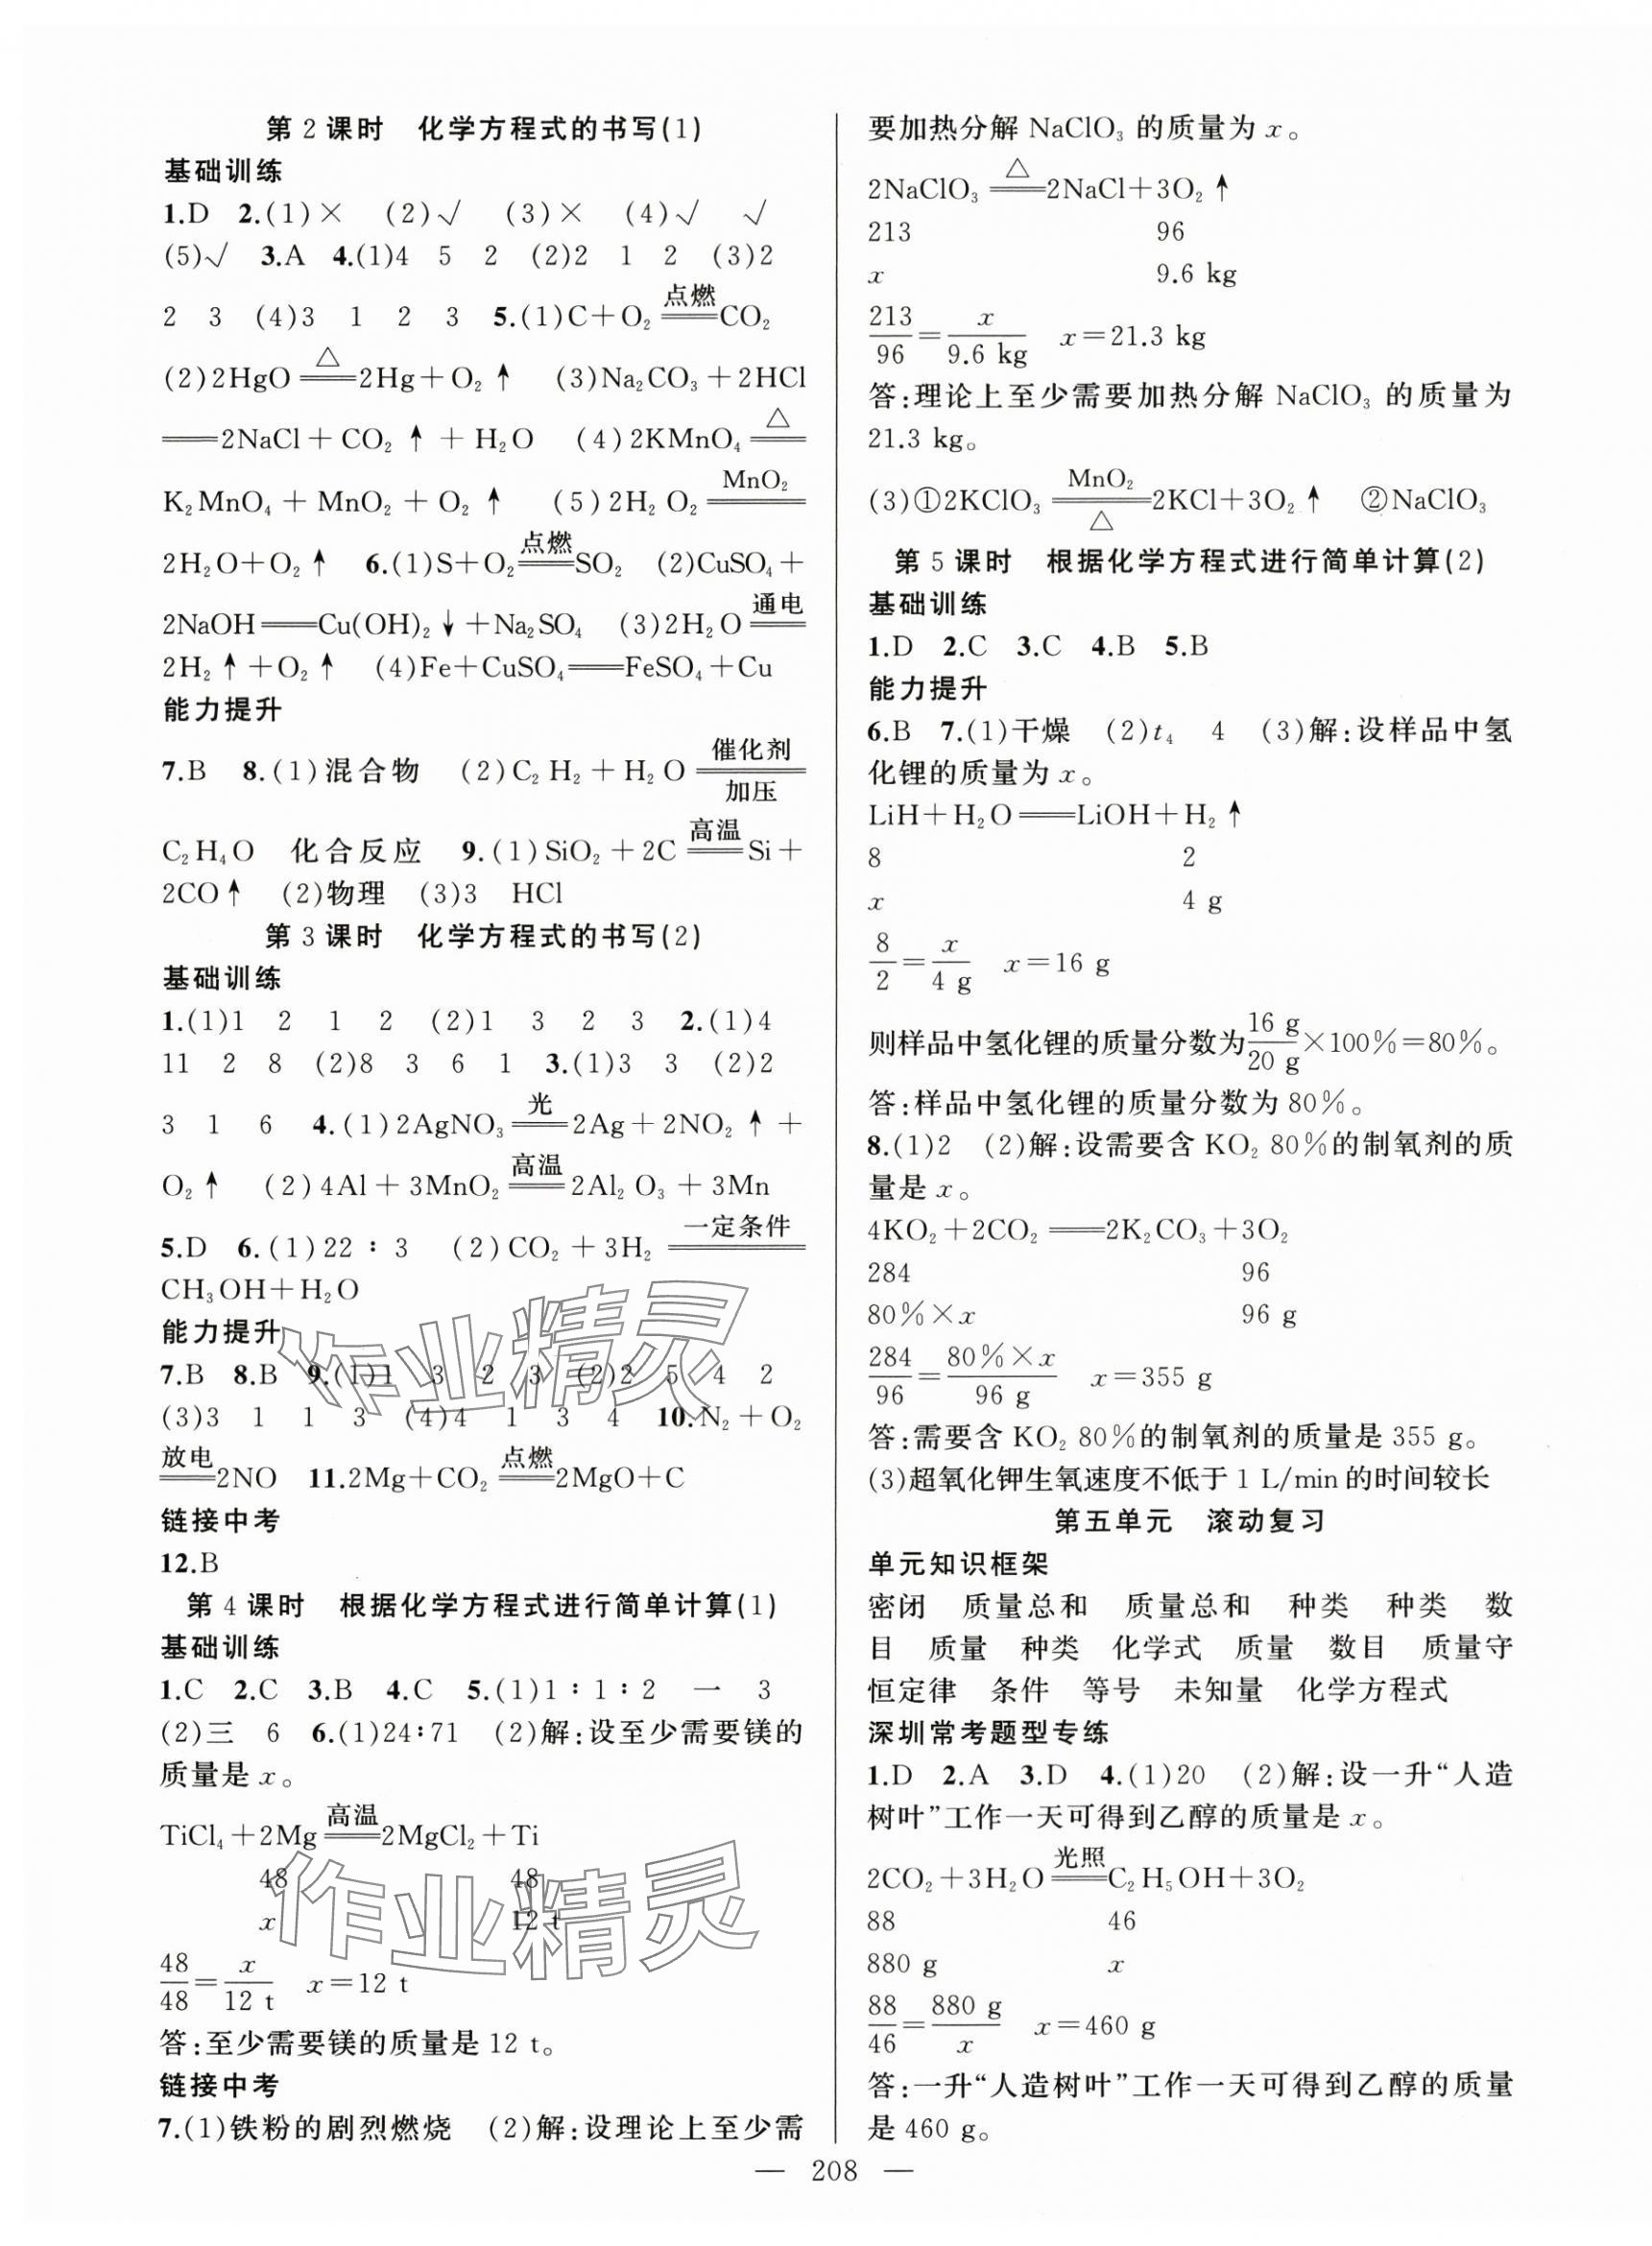 第2课时　化学方程式的书写(1)
基础训练
1.D 2.(1)× (2)√ (3)× (4)√ √
(5)√ 3.A 4.(1)4 5 2 (2)2 1 2 (3)2
2 3 (4)3 1 2 3 5.(1)C+O₂ =点燃= CO₂
(2)2HgO =△= 2Hg+O₂↑ (3)Na₂CO₃+2HCl
══2NaCl+CO₂↑+H₂O (4)2KMnO₄ =△=
K₂MnO₄+MnO₂+O₂↑ (5)2H₂O₂ =MnO₂=
2H₂O+O₂↑ 6.(1)S+O₂ =点燃= SO₂ (2)CuSO₄+
2NaOH══Cu(OH)₂↓+Na₂SO₄ (3)2H₂O =通电=
2H₂↑+O₂↑ (4)Fe+CuSO₄══FeSO₄+Cu
能力提升
7.B 8.(1)混合物 (2)C₂H₂+H₂O =催化剂/加压=
C₂H₄O 化合反应 9.(1)SiO₂+2C =高温= Si+
2CO↑ (2)物理 (3)3 HCl
第3课时　化学方程式的书写(2)
基础训练
1.(1)1 2 1 2 (2)1 3 2 3 2.(1)4
11 2 8 (2)8 3 6 1 3.(1)3 3 (2)2
3 1 6 4.(1)2AgNO₃ =光= 2Ag+2NO₂↑+
O₂↑ (2)4Al+3MnO₂ =高温= 2Al₂O₃+3Mn
5.D 6.(1)22∶3 (2)CO₂+3H₂ =一定条件=
CH₃OH+H₂O
能力提升
7.B 8.B 9.(1)1 3 2 3 (2)2 5 4 2
(3)3 1 1 3 (4)4 1 3 4 10.N₂+O₂
=放电= 2NO 11.2Mg+CO₂ =点燃= 2MgO+C
链接中考
12.B
第4课时　根据化学方程式进行简单计算(1)
基础训练
1.C 2.C 3.B 4.C 5.(1)1∶1∶2 一 3
(2)三 6 6.(1)24∶71 (2)解:设至少需要镁的
质量是x。
TiCl₄+2Mg =高温= 2MgCl₂+Ti
48 48
x 12 t
48/48=x/12 t x=12 t
答:至少需要镁的质量是12 t。
链接中考
7.(1)铁粉的剧烈燃烧 (2)解:设理论上至少需
要加热分解NaClO₃的质量为x。
2NaClO₃ =△= 2NaCl+3O₂↑
213 96
x 9.6 kg
213/96=x/9.6 kg x=21.3 kg
答:理论上至少需要加热分解NaClO₃的质量为
21.3 kg。
(3)①2KClO₃ =MnO₂/△= 2KCl+3O₂↑ ②NaClO₃
第5课时　根据化学方程式进行简单计算(2)
基础训练
1.D 2.C 3.C 4.B 5.B
能力提升
6.B 7.(1)干燥 (2)t₄ 4 (3)解:设样品中氢
化锂的质量为x。
LiH+H₂O══LiOH+H₂↑
8 2
x 4 g
8/2=x/4 g x=16 g
则样品中氢化锂的质量分数为16 g/20 g×100%=80%。
答:样品中氢化锂的质量分数为80%。
8.(1)2 (2)解:设需要含KO₂ 80%的制氧剂的质
量是x。
4KO₂+2CO₂══2K₂CO₃+3O₂
284 96
80%×x 96 g
284/96=80%×x/96 g x=355 g
答:需要含KO₂ 80%的制氧剂的质量是355 g。
(3)超氧化钾生氧速度不低于1 L/min的时间较长
第五单元　滚动复习
单元知识框架
密闭 质量总和 质量总和 种类 种类 数
目 质量 种类 化学式 质量 数目 质量守
恒定律 条件 等号 未知量 化学方程式
深圳常考题型专练
1.D 2.A 3.D 4.(1)20 (2)解:设一升“人造
树叶”工作一天可得到乙醇的质量是x。
2CO₂+3H₂O =光照= C₂H₅OH+3O₂
88 46
880 g x
88/46=880 g/x x=460 g
答:一升“人造树叶”工作一天可得到乙醇的质量
是460 g。
— 208 —
作业精灵
作业精灵